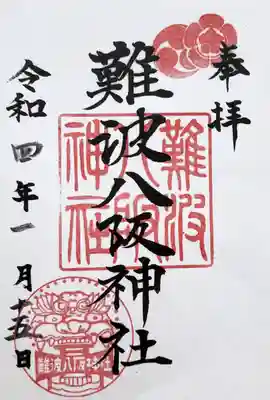 奉拝
難波八阪神社
難波
八阪
神社
令和四年一月十五日
難波八阪神社